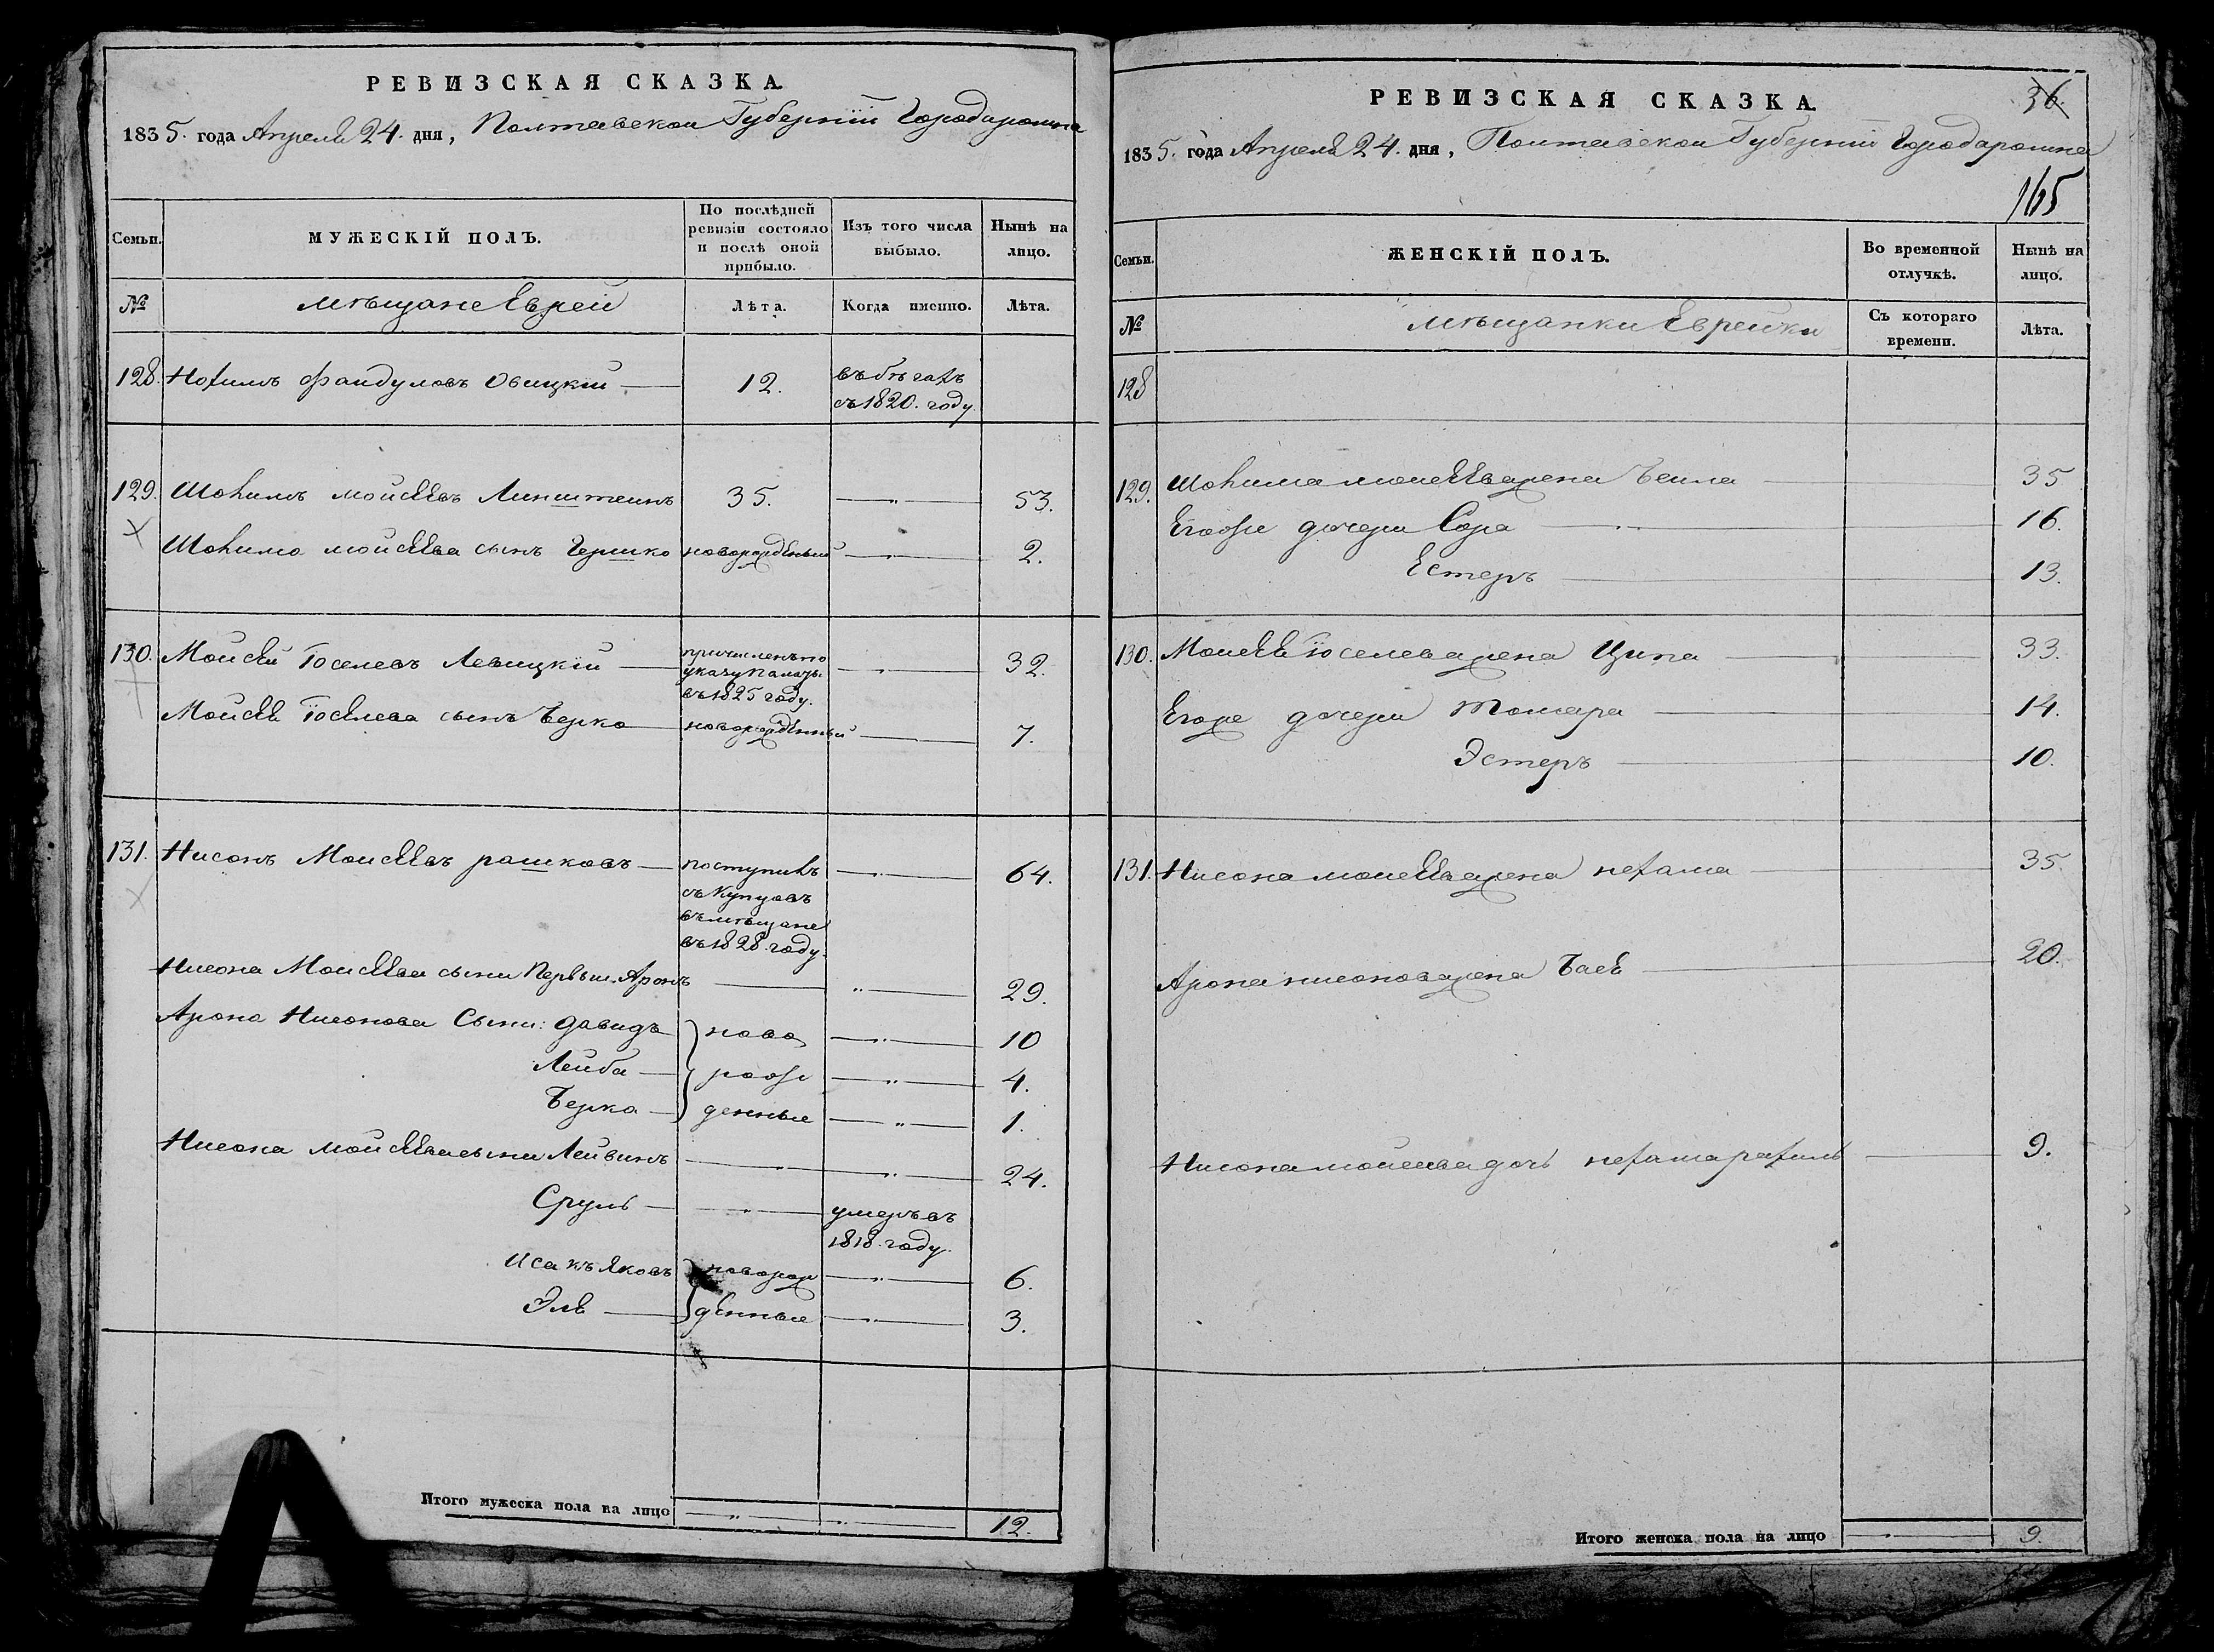 РЕВИЗСКАЯ СКАЗКА.
1835. года Апреля 24. дня, Полтавской Губернїи Города ромна
Семьи.
МУЖЕСКІЙ ПОЛЪ.
По послѣдней ревизіи состояло и послѣ оной прибыло.
Изъ того числа выбыло.
Нынѣ на лицо.
№
мѣщане Евреи
Лѣта.
Когда именно.
Лѣта.
128. Нохимъ Файдуловъ Овицкїй 12. въ бѣгахъ
съ 1820. году.
129. Шохимъ мойсеевъ Линштеинъ 35. 53.
Шохима мойсеева сынъ Гершко новорожденный 2.
130. Мойсей Іоселевъ Левицкїй причисленъ по
указу Палаты
въ 1825 году. 32.
Мойсея Іоселева сынъ Берко новорожденный 7.
131. Нисонъ Моисеевъ рашковъ поступилъ
съ Купцовъ
въ мѣщане
въ 1828. году. 64.
Нисона Моисеева сыни Первый Аронъ 29.
Арона Нисонова Сыни: Давидъ ново 10
Лейба рож 4.
Берка денные 1.
Нисона мойсеева сыни Лейвикъ 24.
Сруль умеръ въ
1818. году.
Исакъ Яковъ новорож 6.
Эля денные 3.
Итого мужеска пола на лицо 12.
РЕВИЗСКАЯ СКАЗКА.
36.
1835. года Апреля 24. дня, Полтавской Губернїи Города ромна
165
Семьи.
ЖЕНСКІЙ ПОЛЪ.
Во временной отлучкѣ.
Нынѣ на лицо.
№
мѣщанки Еврейки
Съ котораго времени.
Лѣта.
128
129. Шохима моисеева жена Бейла 35
Егоже дочери Сора 16.
Естеръ 13.
130. Моисея Іоселева жена Ципа 33.
Егоже дочери Томара 14.
Эстеръ 10.
131. Нисона моисеева жена нехама 35.
Арона нисонова жена Бася 20.
Нисона моисеева дочь нехама рахиль 9.
Итого женска пола на лицо 9.